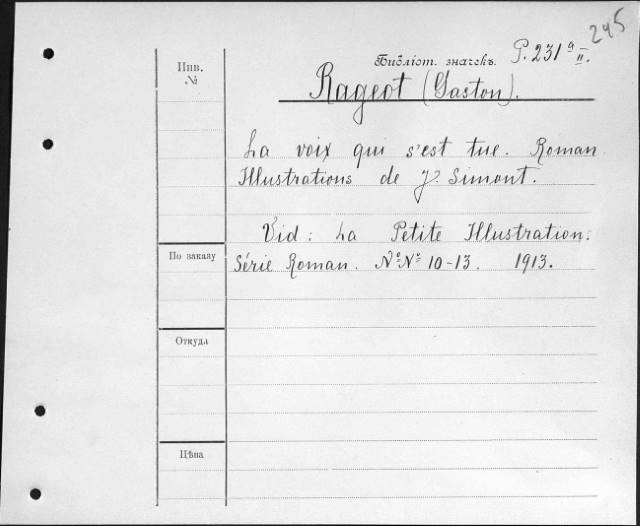 245
Инв. №
Библіот. значекъ. P. 231 a II.
Rageot (Gaston).
La voix qui s'est tue. Roman.
Illustrations de J. Simont.
Vid: La Petite Illustration.
Série Roman. №№ 10-13. 1913.
По заказу
Откуда
Цѣна